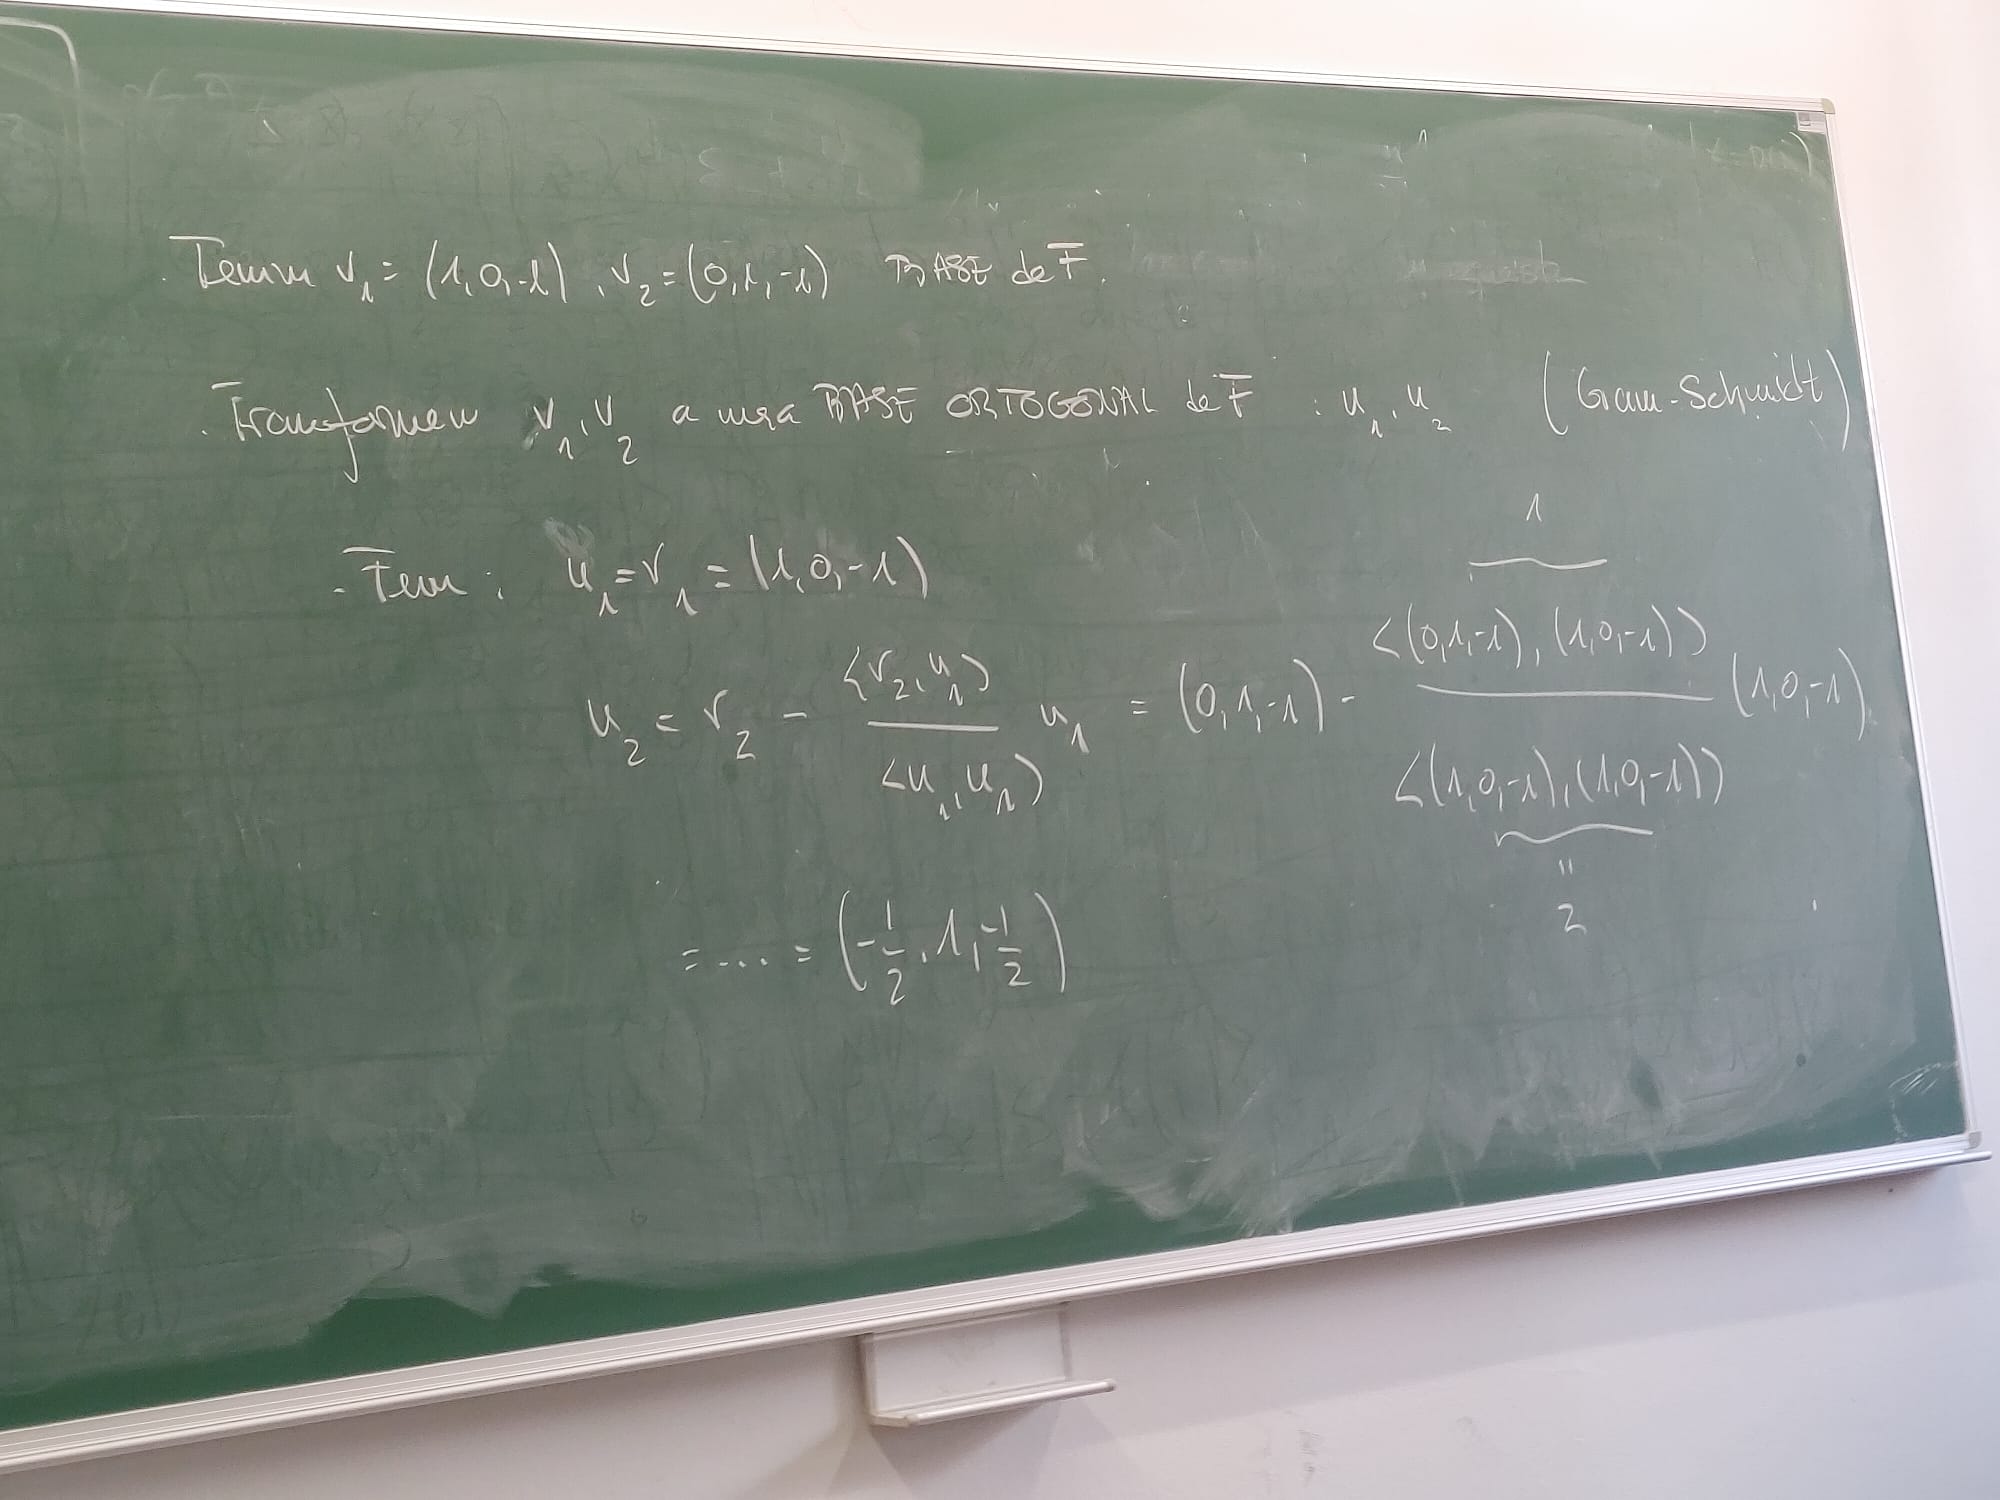 Tenim v₁ = (1,0,-1), v₂ = (0,1,-1) BASE de F.
. Transformem v₁, v₂ a una BASE ORTOGONAL de F : u₁, u₂ (Gram-Schmidt)
- Fem : u₁ = v₁ = (1,0,-1)
u₂ = v₂ - <v₂,u₁> / <u₁,u₁> u₁ = (0,1,-1) - <(0,1,-1), (1,0,-1)> / <(1,0,-1), (1,0,-1)> (1,0,-1)
1
"
2
= ... = (-1/2, 1, -1/2)